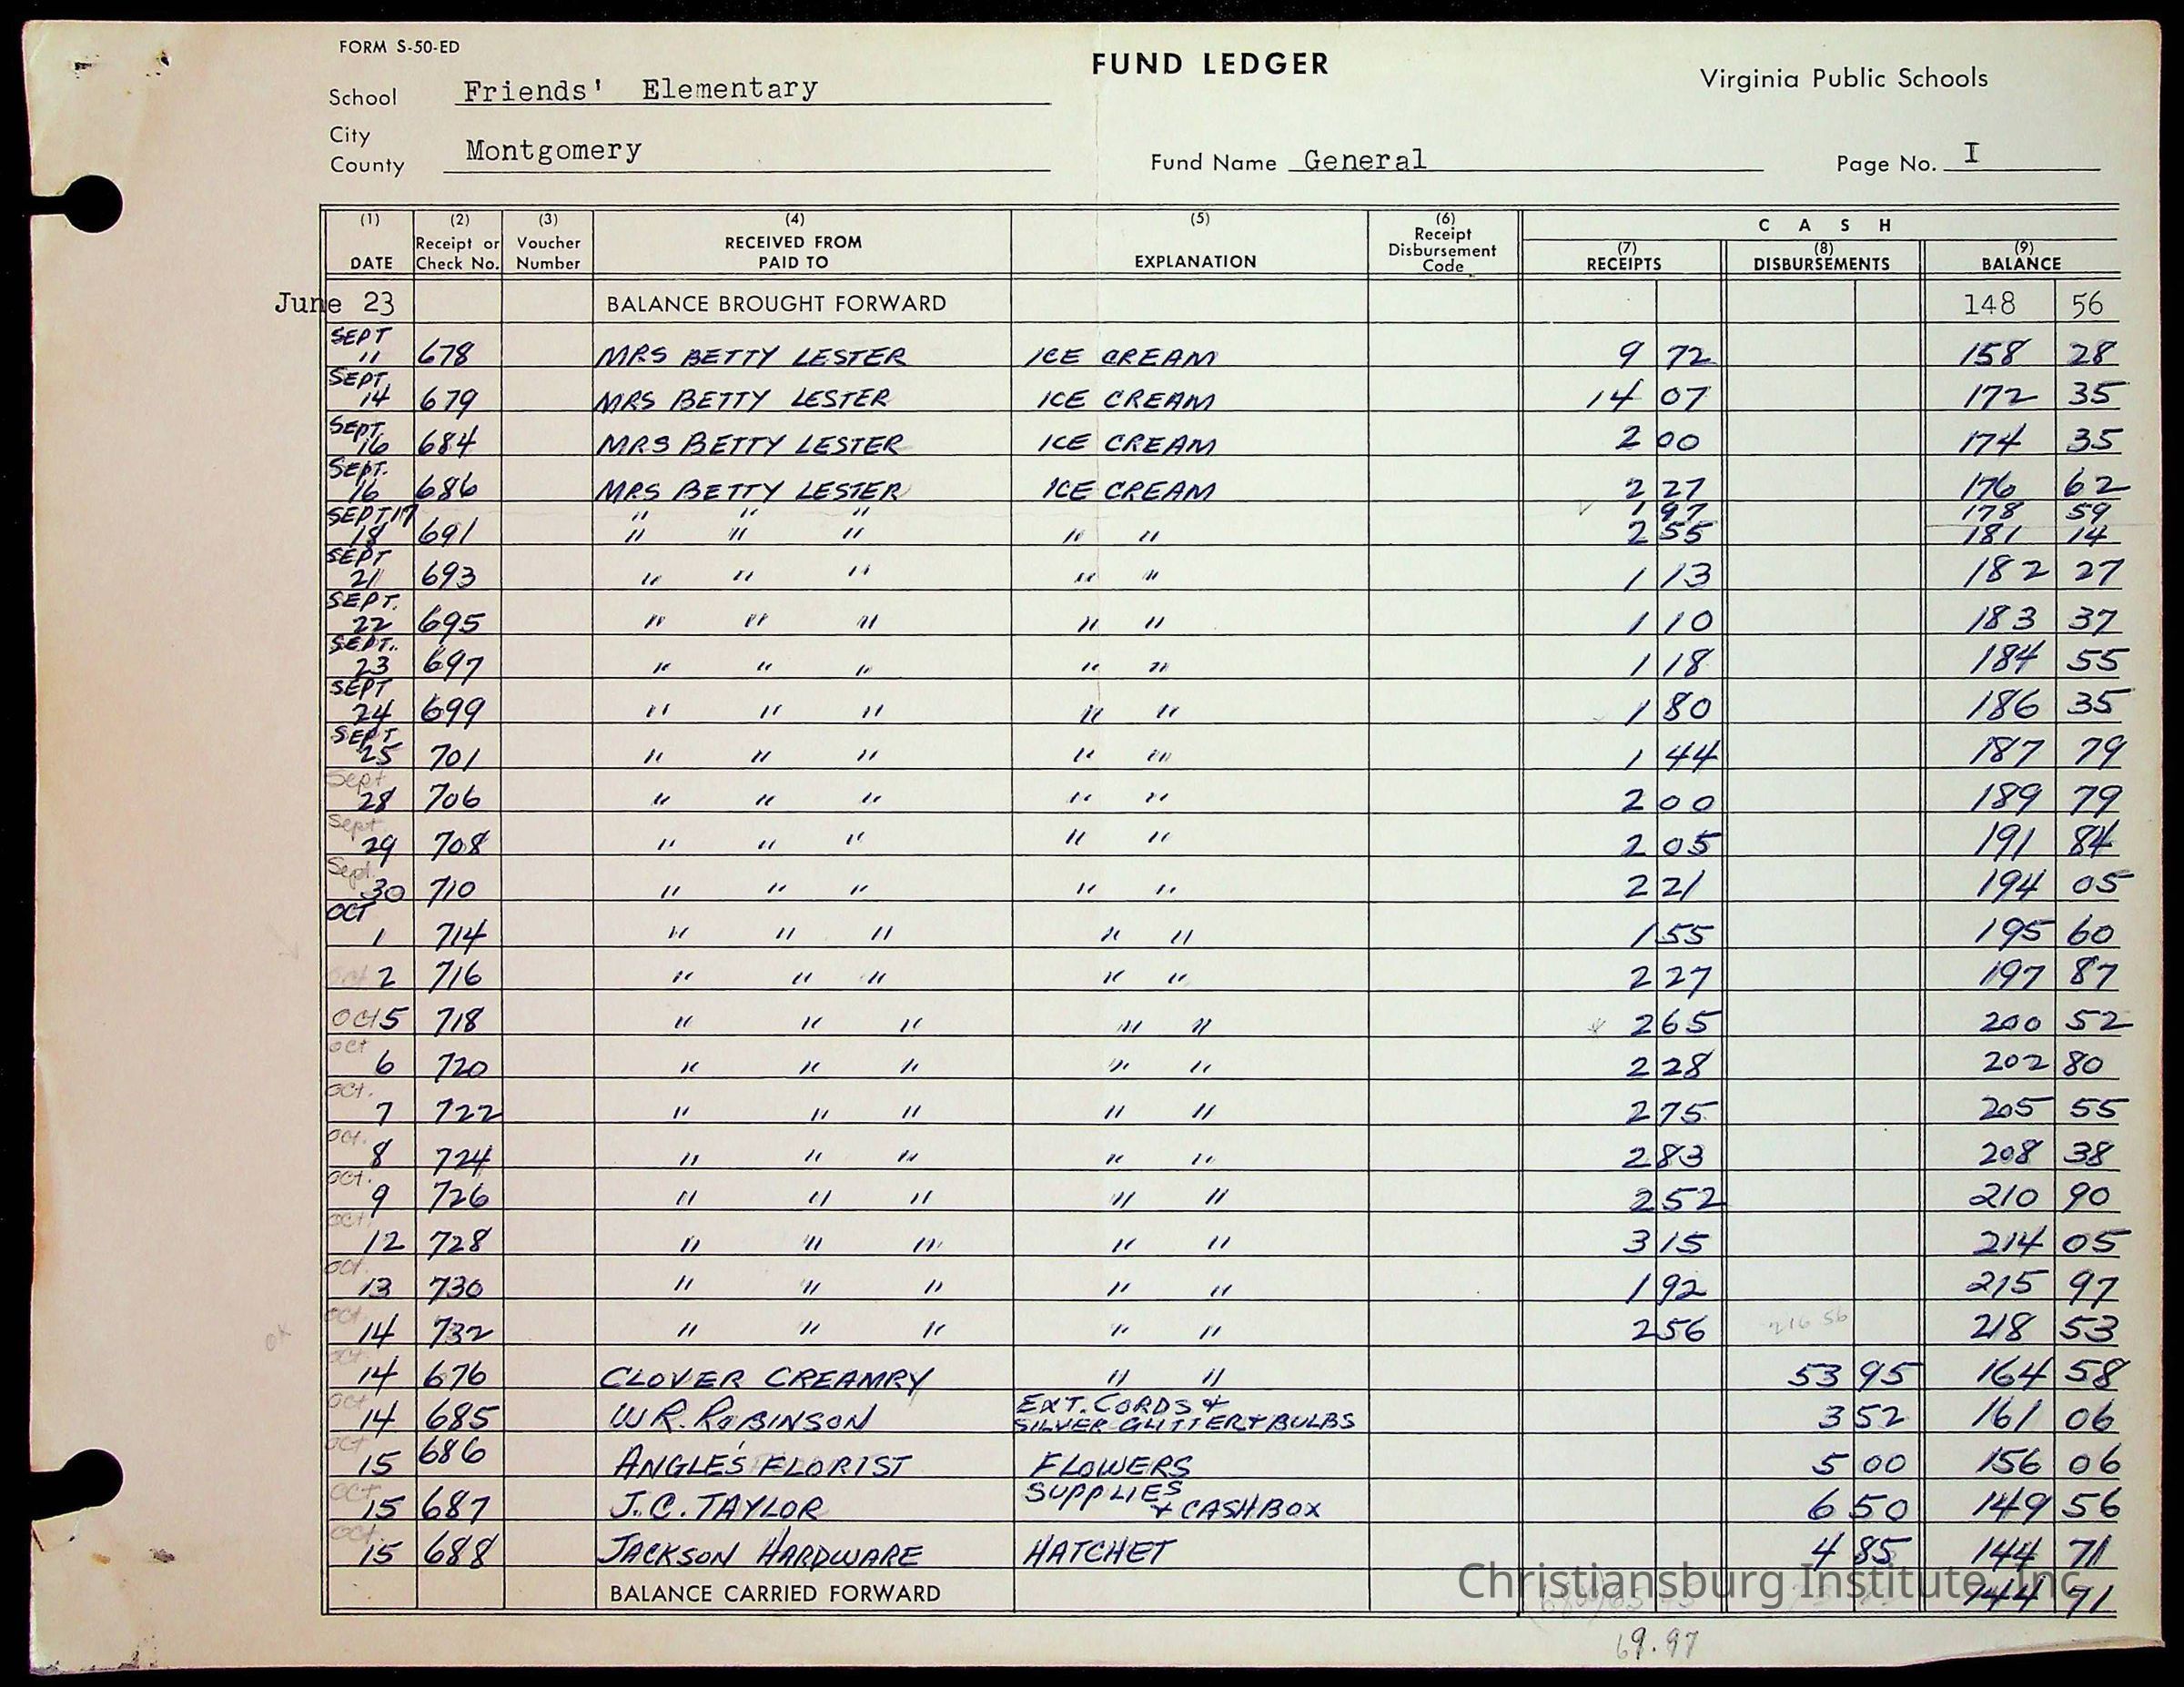 FORM S-50-ED
FUND LEDGER
Virginia Public Schools
School Friends' Elementary
City
County Montgomery
Fund Name General
Page No. I
(1) DATE (2) Receipt or Check No. (3) Voucher Number (4) RECEIVED FROM PAID TO (5) EXPLANATION (6) Receipt Disbursement Code CASH (7) RECEIPTS (8) DISBURSEMENTS (9) BALANCE
June 23 BALANCE BROUGHT FORWARD 148 56
SEPT 11 678 MRS BETTY LESTER ICE CREAM 9 72 158 28
SEPT, 14 679 MRS BETTY LESTER ICE CREAM 14 07 172 35
SEPT, 16 684 MRS BETTY LESTER ICE CREAM 2 00 174 35
SEPT. 16 686 MRS BETTY LESTER ICE CREAM 2 27 176 62
SEPT 17 " " " 1 97 178 59
18 691 " " " " " 2 55 181 14
SEPT 21 693 " " " " " 1 13 182 27
SEPT. 22 695 " " " " " 1 10 183 37
SEPT. 23 697 " " " " " 1 18 184 55
SEPT 24 699 " " " " " 1 80 186 35
SEPT 25 701 " " " " " 1 44 187 79
Sept 28 706 " " " " " 2 00 189 79
Sept 29 708 " " " " " 2 05 191 84
Sept. 30 710 " " " " " 2 21 194 05
OCT 1 714 " " " " " 1 55 195 60
oct 2 716 " " " " " 2 27 197 87
oct 5 718 " " " " " 2 65 200 52
oct 6 720 " " " " " 2 28 202 80
oct. 7 722 " " " " " 2 75 205 55
oct. 8 724 " " " " " 2 83 208 38
oct. 9 726 " " " " " 2 52 210 90
oct. 12 728 " " " " " 3 15 214 05
oct. 13 730 " " " " " 1 92 215 97
ok oct 14 732 " " " " " 2 56 216 56 218 53
oct. 14 676 CLOVER CREAMRY " " 53 95 164 58
oct 14 685 W R. ROBINSON EXT. CORDS + SILVER GLITTER + BULBS 3 52 161 06
oct 15 686 ANGLE'S FLORIST FLOWERS 5 00 156 06
OCT 15 687 J.C. TAYLOR SUPPLIES + CASH BOX 6 50 149 56
oct. 15 688 JACKSON HARDWARE HATCHET 4 85 144 71
BALANCE CARRIED FORWARD 144 71
Christiansburg Institute, Inc
69.97